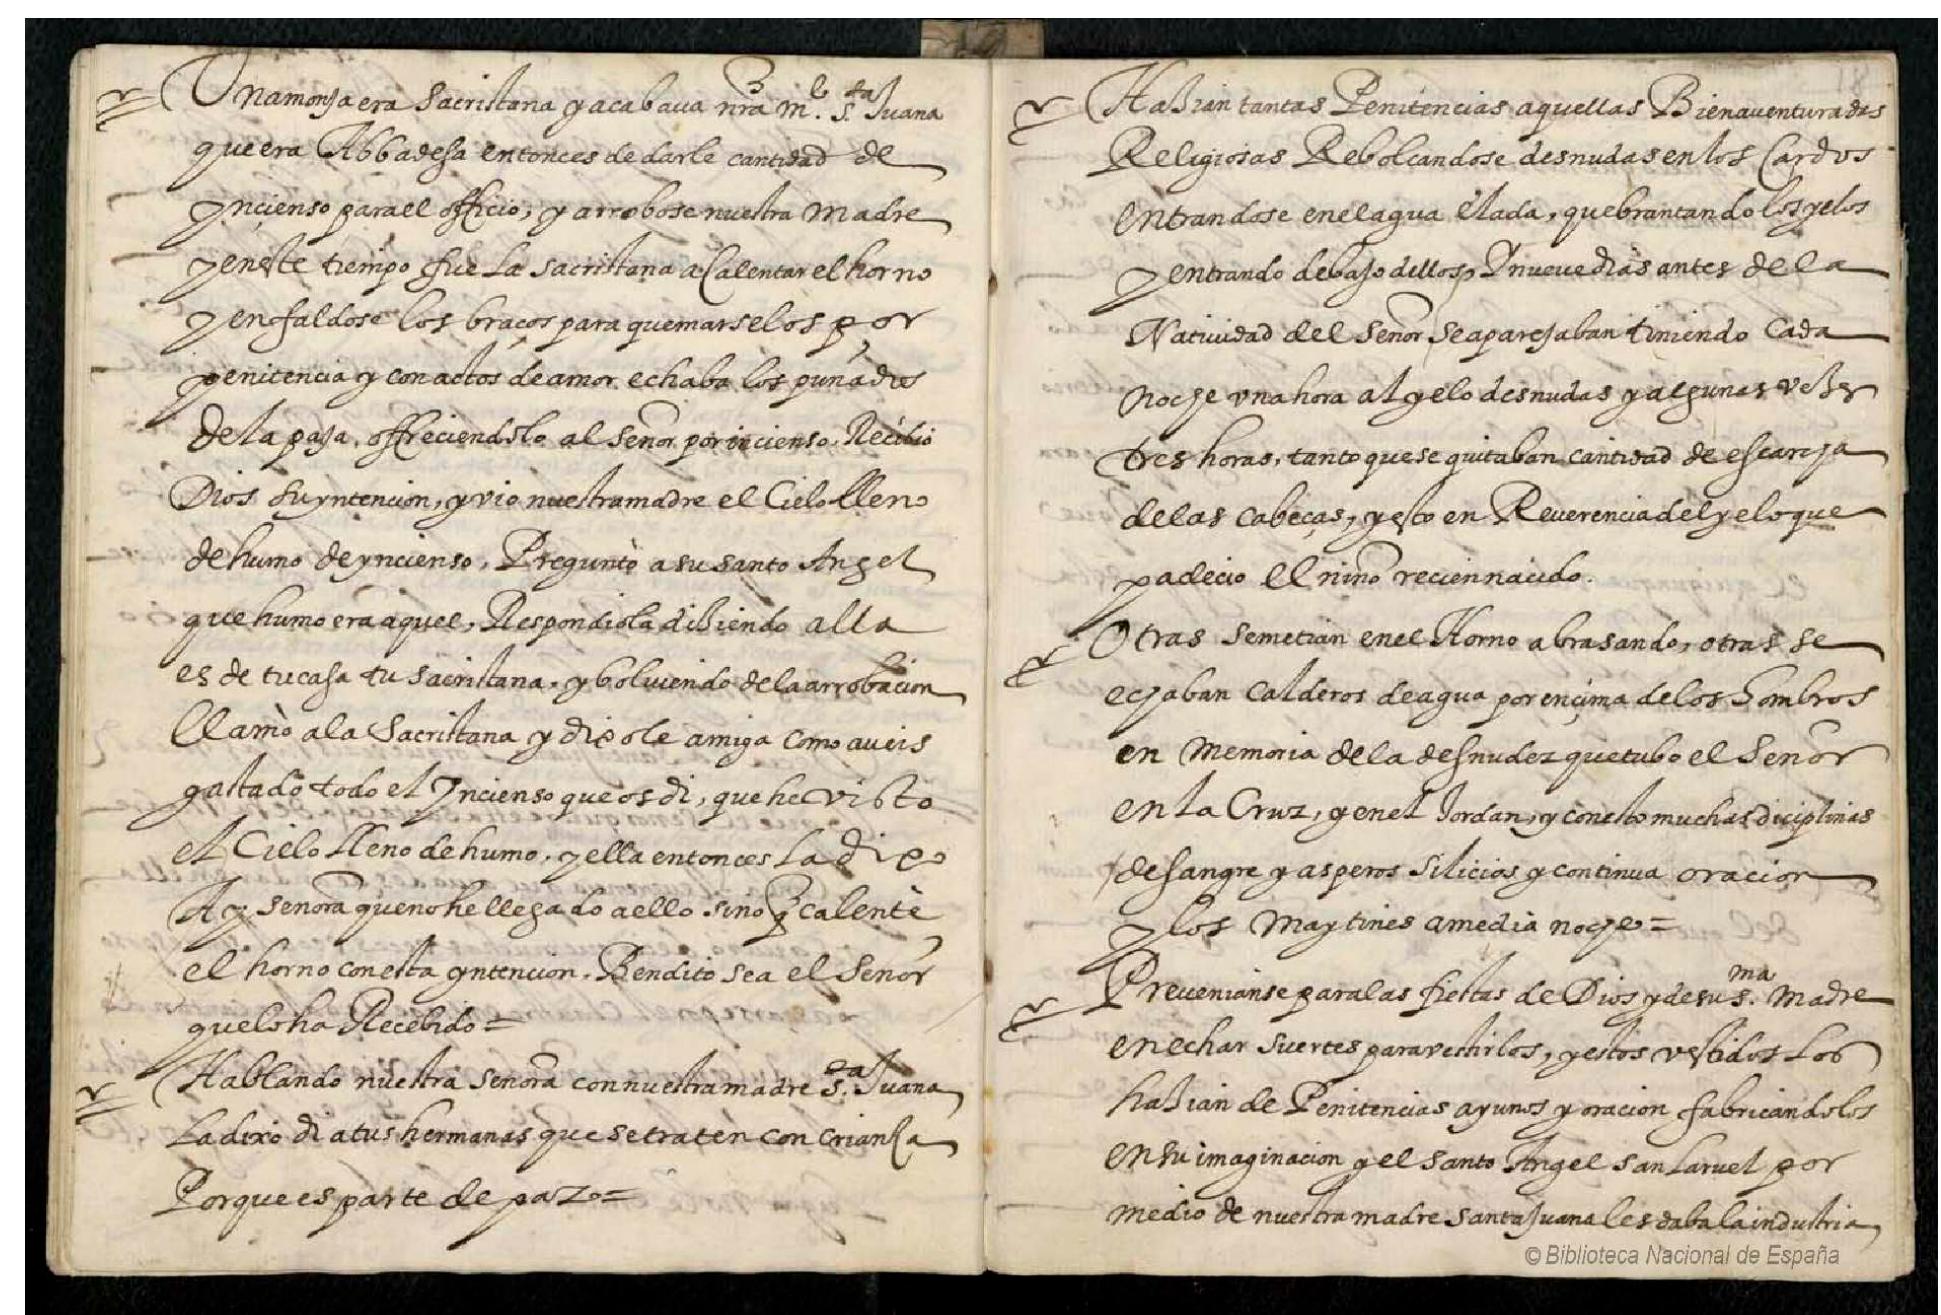 Una monja era Sacristana y acabava nrã me. sta Juana
que era Abbadesa entonces de darle cantidad de
yncienso para el officio, y arrobose nuestra Madre
y en este tiempo fue la sacristana a Calentar el horno
y enfaldose los braços para quemarselos por
penitencia y con actos de amor echaba los puñados
de la paja, offreciendolo al señor por incienso. Recibio
Dios su yntencion, y vio nuestra madre el Cielo lleno
de humo de yncienso, Preguntò a su santo Angel
que humo era aquel, Respondiola diziendo alla
es de tu casa tu sacristana, y bolviendo de la arrobacion
llamò a la Sacristana y dixole amiga como aveis
gastado todo el Yncienso que os di, que he visto
el Cielo lleno de humo, y ella entonces la dixo
Ay señora que no he llegado a ello sino q̃ calentè
el horno con esta yntencion. Bendito sea el Señor
que lo ha Recebido =
Hablando nuestra señora con nuestra madre sta Juana
La dixo di a tus hermanas que se traten con crianza
Porque es parte de paz =
Hazian tantas Penitencias aquellas Bienaventuradas
Religiosas Rebolcandose desnudas en los Cardos
entrandose en el agua elada, quebrantando los yelos
y entrando debajo dellos, Y nueve dias antes de la
Natividad del Señor se aparejaban tiniendo cada
noche una hora al yelo desnudas y algunas vezes
tres horas, tanto que se quitaban cantidad de escarcha
de las cabeças, y esto en Reverencia del yelo que
padecio el niño recien nacido.
Otras se metian en el Horno abrasando, otras se
echaban Calderos de agua por ençima de los hombros
en Memoria de la desnudez que tubo el Señor
en la Cruz, y en el Jordan, y con esto muchas diciplinas
de sangre y asperos silicios y continua oracion
y los Maytines a media noche =
Prevenianse para las fiestas de Dios y de su s.ma Madre
en echar suertes para vestirlos, y estos vestidos los
hazian de Penitencias ayunos y oracion fabricandolos
en su imaginacion y el santo Angel san Laruel por
medio de nuestra madre santa Juana les daba la industria
© Biblioteca Nacional de España